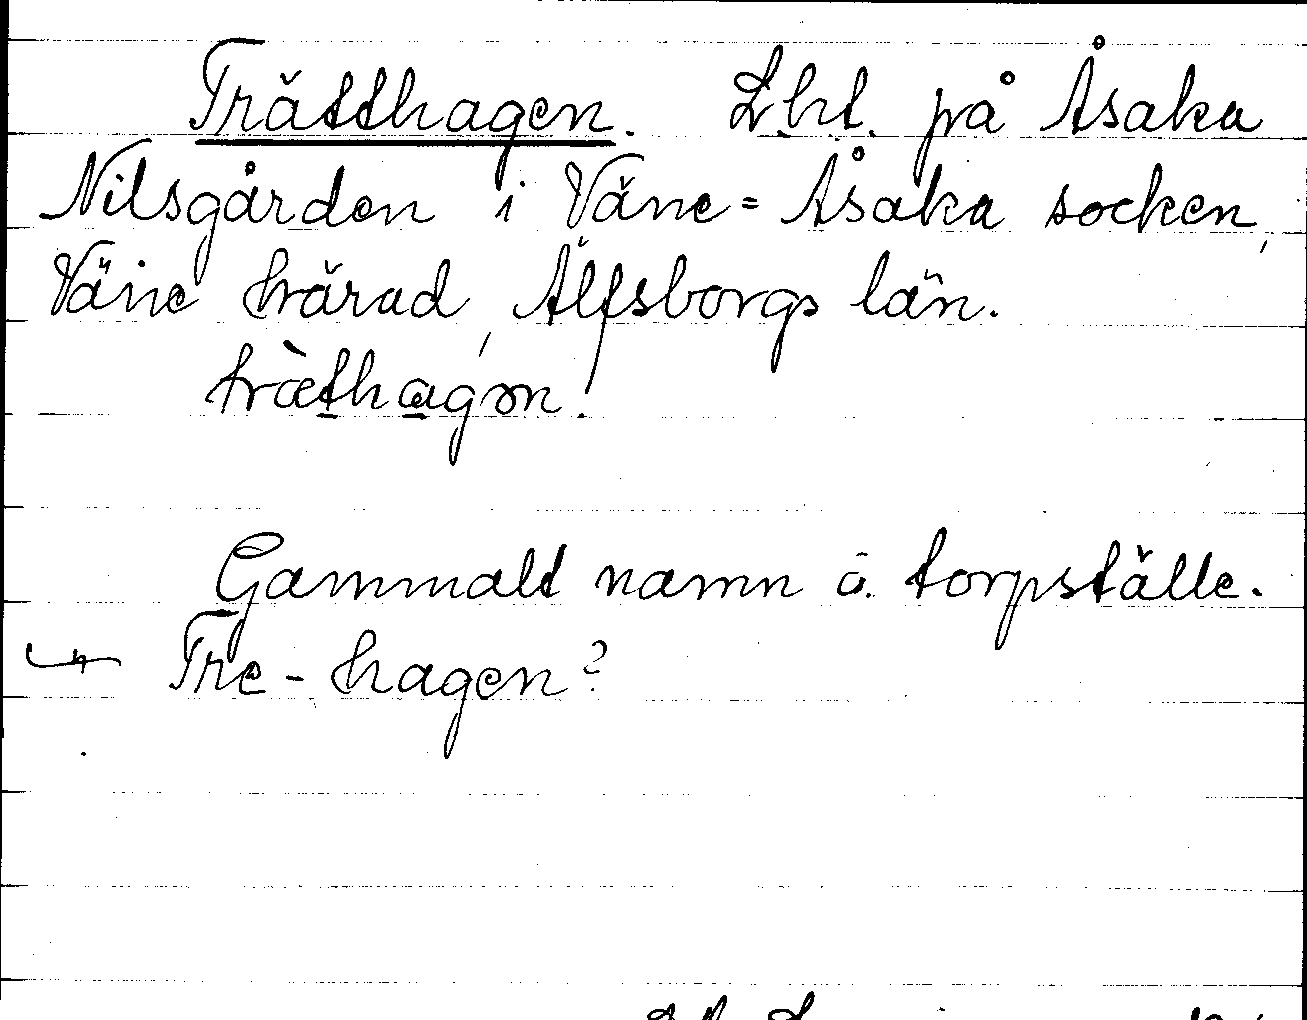 Trätthagen. Lht. på Åsaka
Nilsgården i Väne=Åsaka socken,
Väne härad, Älfsborgs län.
træ̀thagən.
Gammalt namn å torpställe.
↳ Tre-hagen?